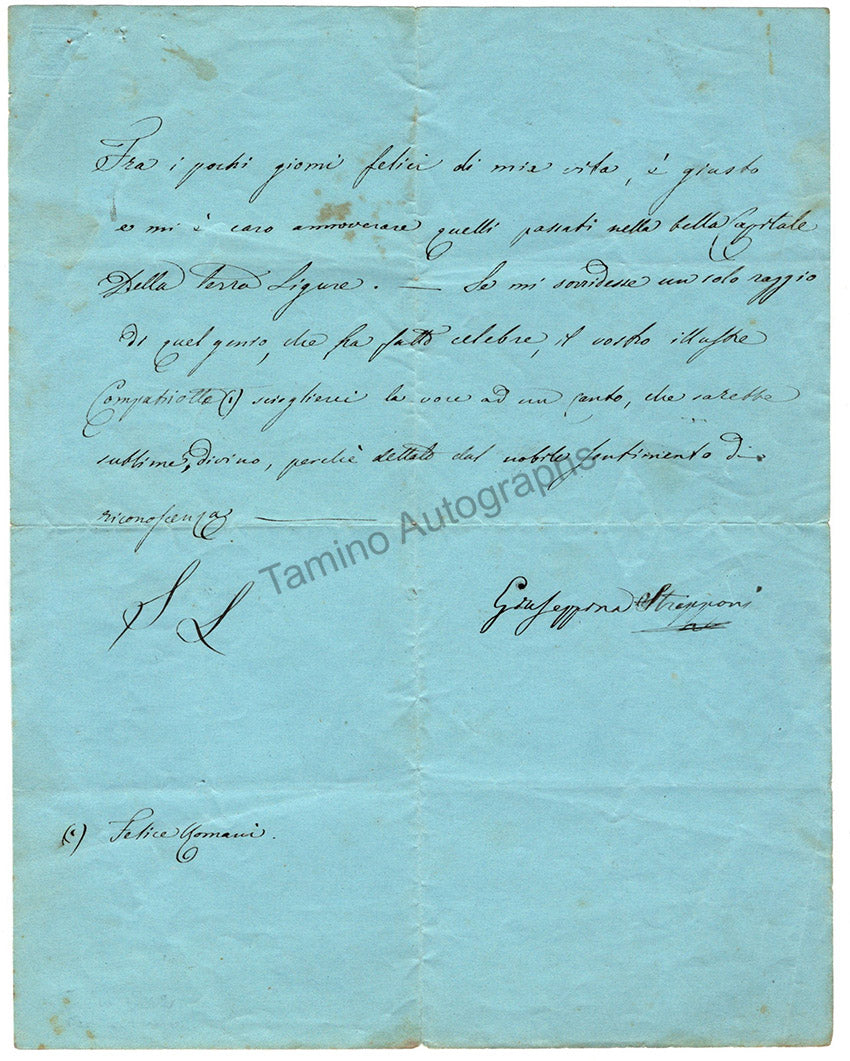 Fra i pochi giorni felici di mia vita, è giusto
e mi è caro annoverare quelli passati nella bella Capitale
Della Terra Ligure. — Se mi sorridesse un solo raggio
di quel genio, che ha fatto celebre, il vostro illustre
Compatriotta (1) scioglierei la voce ad un canto, che sarebbe
sublime, divino, perchè dettato dal nobile sentimento di
riconoscenza. —
S L
Giuseppina Strepponi
(1) Felice Romani.
Tamino Autographs